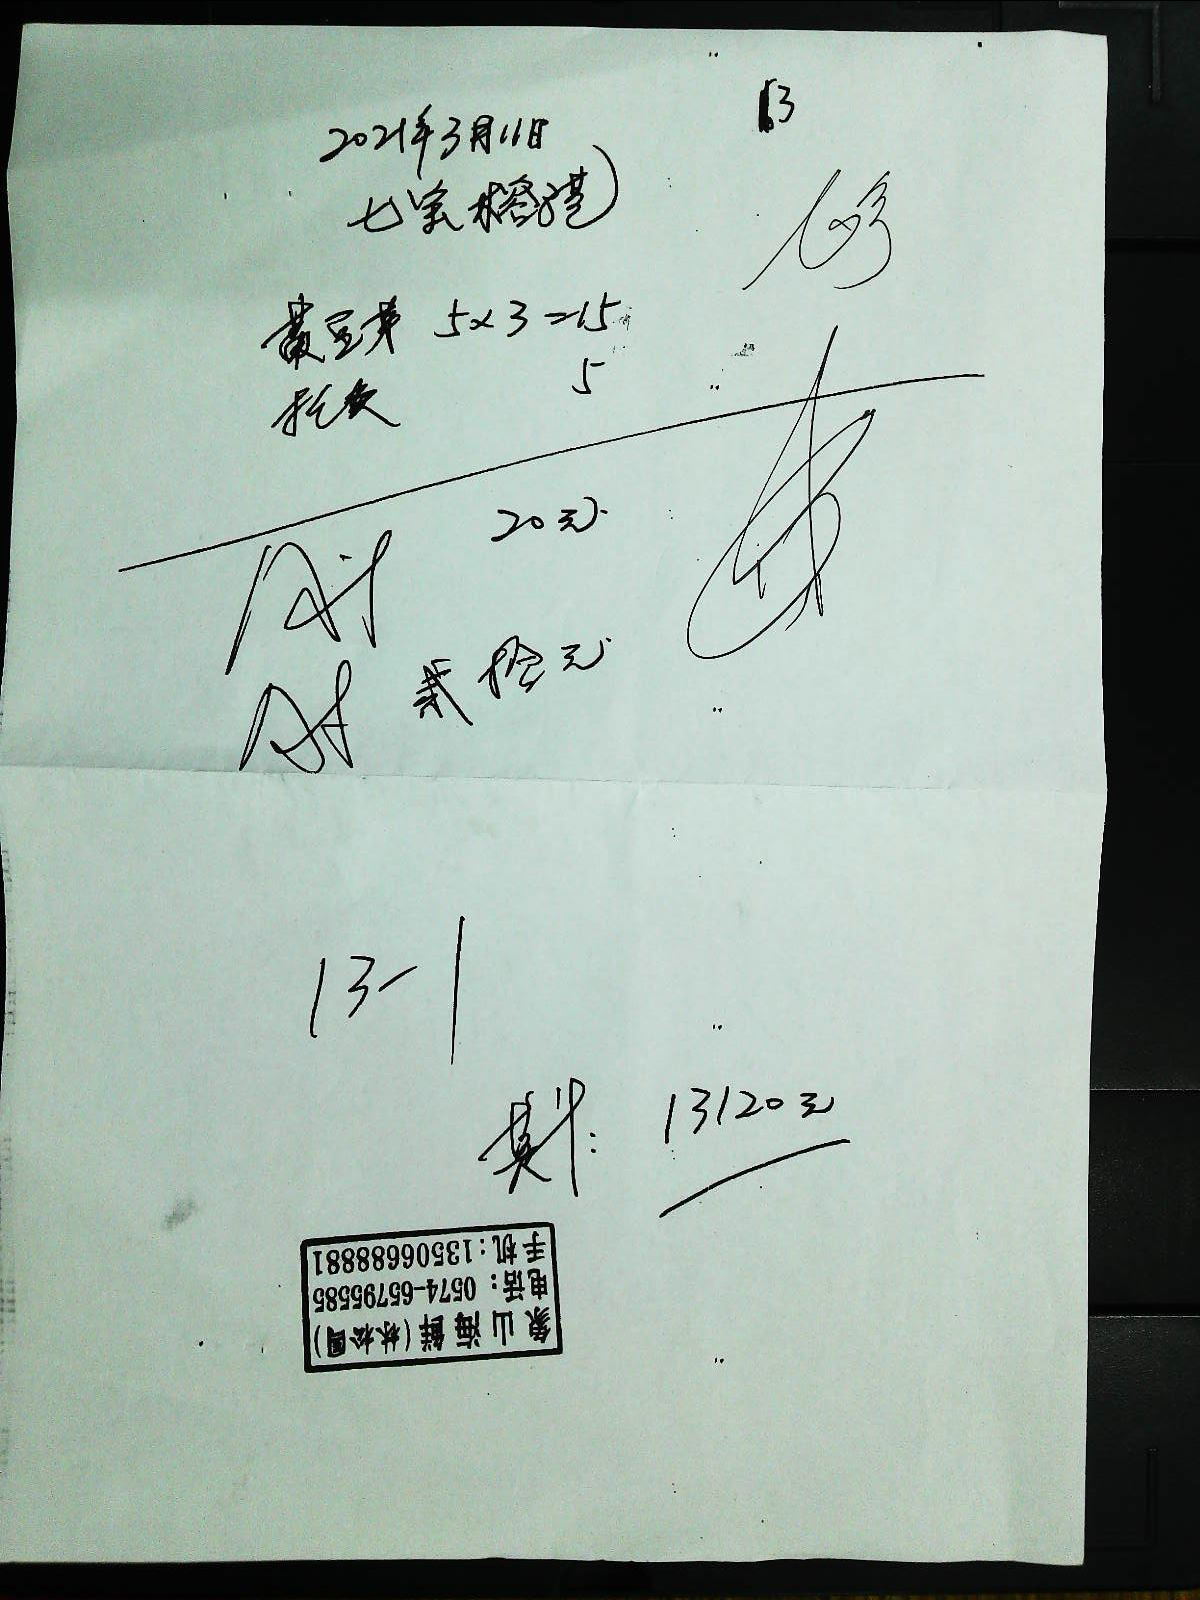 13
2021年3月11日
七宝榕港
黄豆芽 5×3=15
托费 5
20元
贰拾元
13-1
共计: 13120元
象山海鲜(林松國)
电话: 0574-65795585
手机: 13506688881